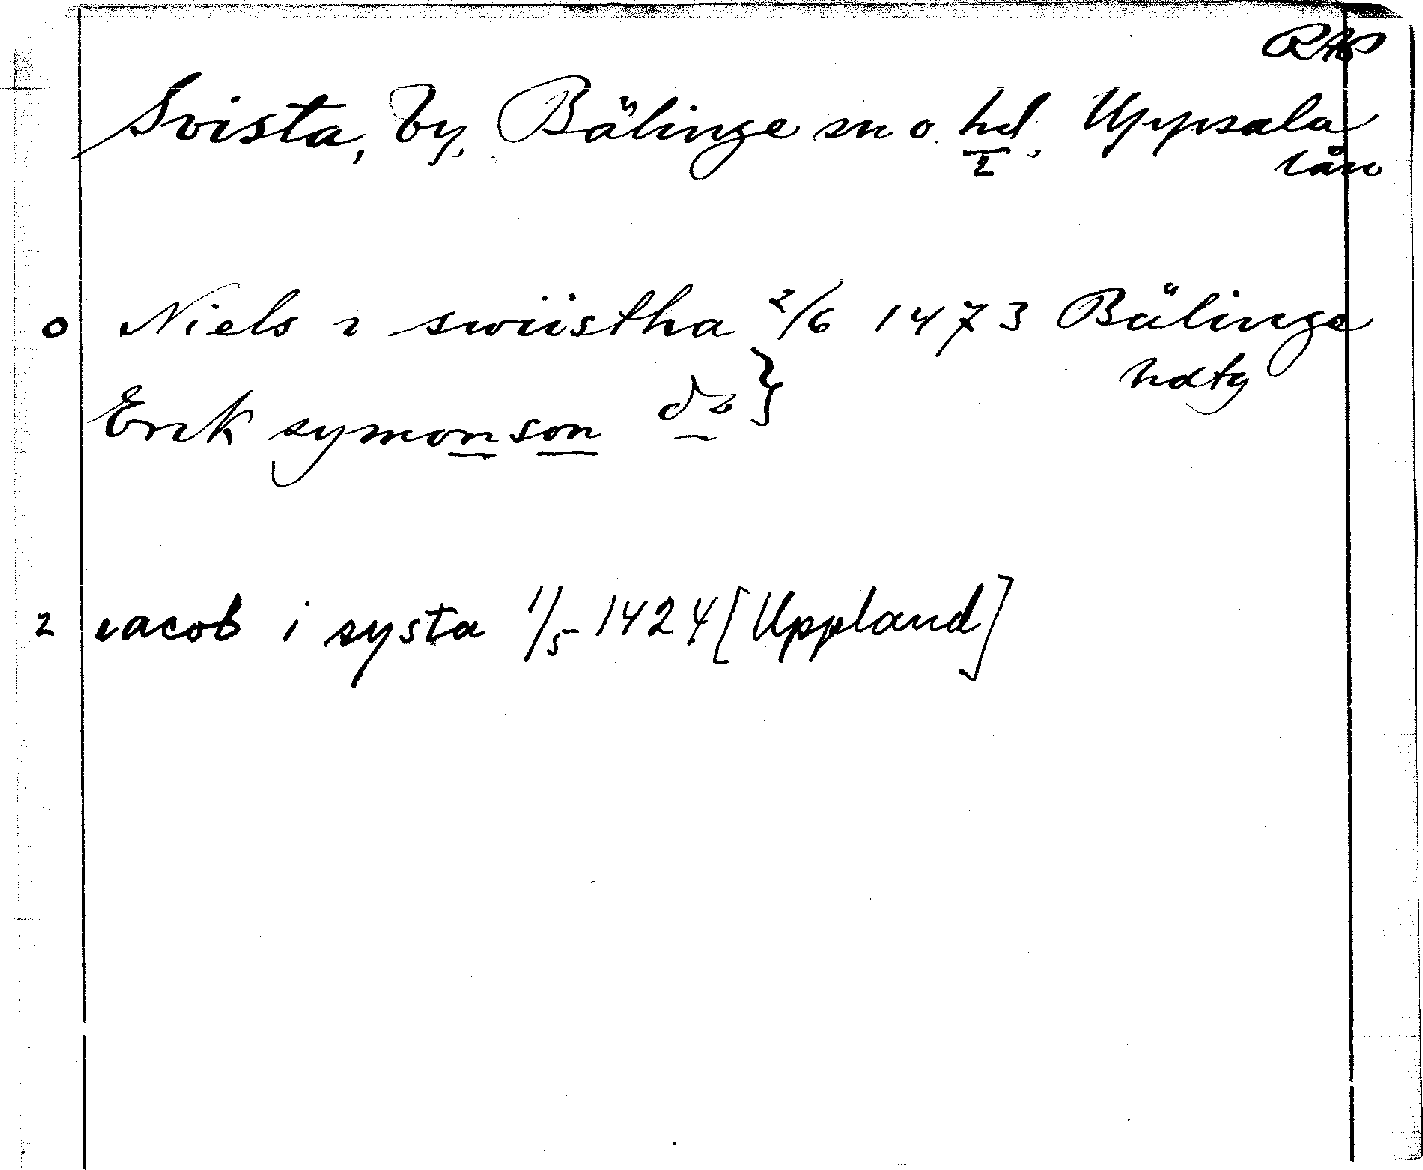 RAP
Svista, by, Bälinge sn o. hd, Uppsala
län
I
o Niels i swiistha 2/6 1473 Bälinge
hdtg
Erik symonson do }
2 iacob i systa 1/5 1424 [Uppland]